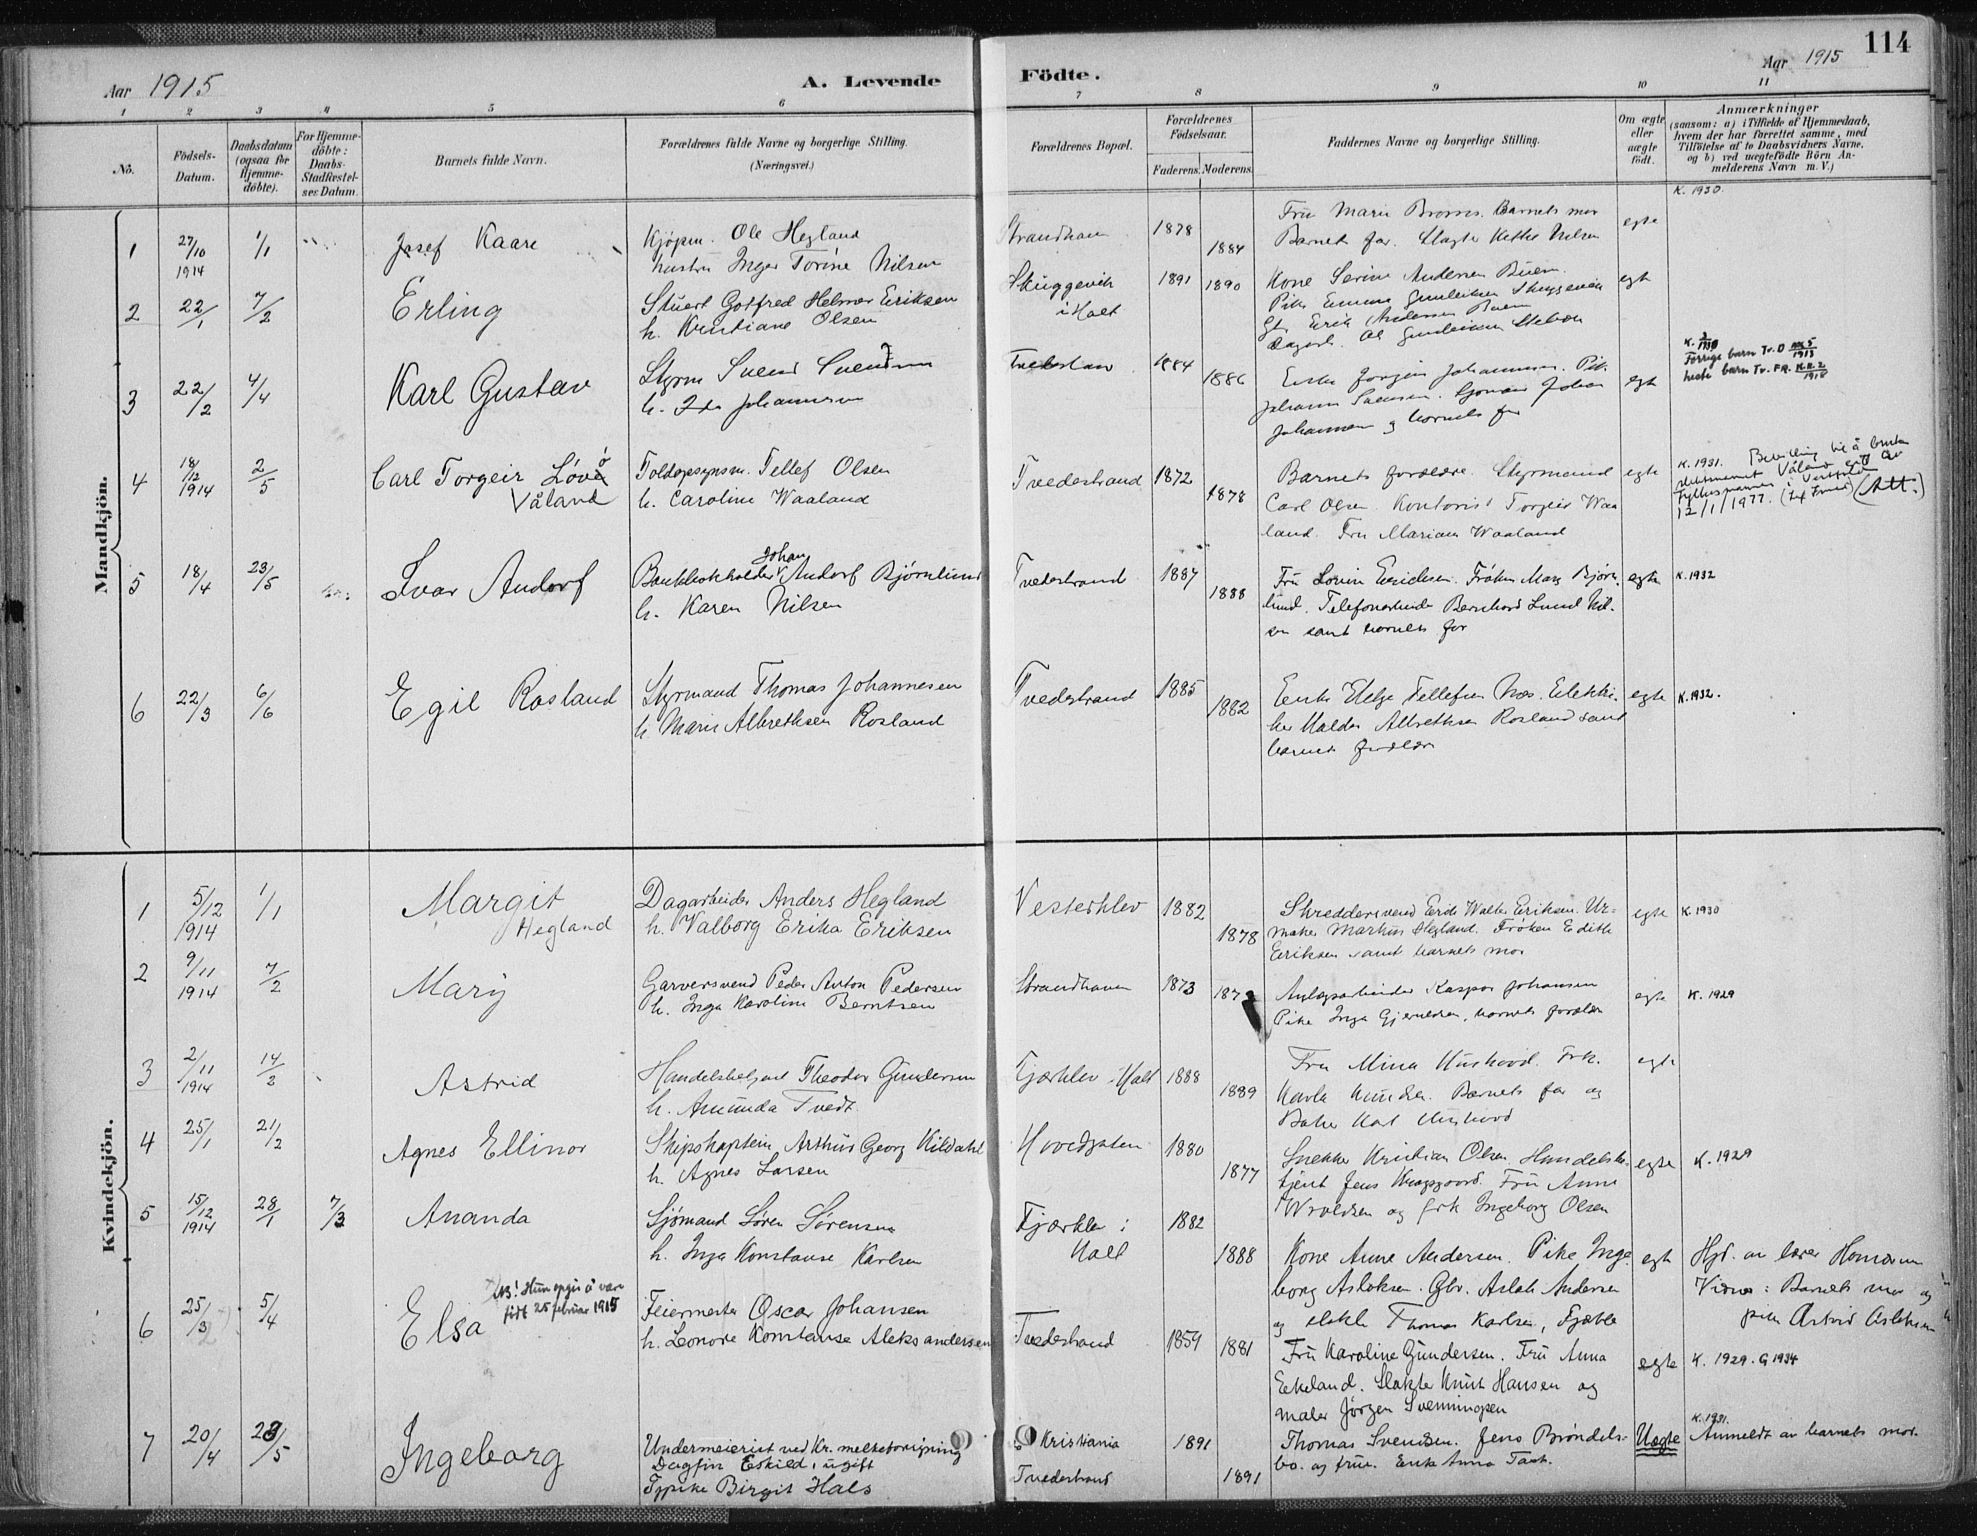 114
Aar 1915
A. Levende
Födte.
Aar 1915
1 2 3 4 5 6 7 8 9 10 11
No.
Födsels-
Datum.
Daabsdatum
(ogsaa for
hjemme-
döbte).
For Hjemme-
döbte:
Daabs-
Stadfæstel-
ses Datum.
Barnets fulde Navn.
Forældrenes fulde Navne og borgerlige Stilling.
(Næringsvei.)
Forældrenes Bopæl.
Forældrenes
Födselsaar.
Faderens. Moderens.
Faddernes Navne og borgerlige Stilling.
Om ægte
eller
uægte
født.
Anmærkninger
(saasom: a) i Tilfælde af Hjemmedaab,
hvem der har forrettet samme, med
Tilføielse af to Daabsvidners Navne,
og b) ved uægtefödte Börn An-
melderens Navn m. V.)
Mandkjön.
1 27/10 1914 1/1 Josef Kaare
Kjøpm. Ole Hegland
hustru Inger Torine Nilsen
Strandhaven 1878 1884
Fru Marie Barnets mor
Barnets far. Nilsen
egte
K. 1930.
2 22/1 7/2 Erling
Stuert Gotfred Helmer Eriksen
h. Kristiane Olsen
Skuggevik
i Holt
1891 1890
Kone Serine Andersen Buen.
Pike Emma Gundersen Skuggevik
Erik Andersen Buen
egte
3 22/2 4/4 Karl Gustav
Styrm Svend Svendsen
h. Ida Johannesen
Tvedestrand 1884 1886
Enke Jørgine Johannesen. Pike
Johanna Svensen. Sjømand Johan
Johannesen og barnets far
egte
K. 1930
Forrige barn Tv. D 1913
neste barn Tv. FR. 1918
4 18/12 1914 2/5 Carl Torgeir Løvø
Våland
Toldopsynsm. Tellef Olsen
h. Caroline Waaland
Tvedestrand 1872 1878
Barnets forældre. Styrmand
Carl Olsen. Kontorist Torgeir Waa
land. Fru Mariane Waaland
egte
K. 1931. Bevilling til å bruke
slektsnavnet Våland gitt av
Fylkesmannen i Vestfold
12/1/1977.
5 18/4 23/5 Ivar Andorf
Bankbokholder Johan Andorf Bjørnlund
h. Karen Nilsen
Tvedestrand 1887 1888
Fru Lovise Eriksen. Frøken Marg Bjørn-
lund. Telefonarbeider Bernhard Lund Nil-
sen samt barnets far
egte
K. 1932
6 22/3 6/6 Egil Rosland
Styrmand Thomas Johannesen
h. Marie Albrethsen Rosland
Tvedestrand 1885 1882
Enke Helge Tellefsen Næs. Elektri-
ker Halder Albrethsen Rosland samt
barnets forældre
egte
K. 1932.
Kvindekjön.
1 5/12 1914 1/1 Margit
Hegland
Dagarbeider Anders Hegland
h. Valborg Erika Eriksen
Vesterklev 1882 1878
Skreddersvend Erik Walter Eriksen. Ur-
maker Markus Hegland. Frøken Edith
Eriksen samt barnets mor
egte
K. 1930
2 9/11 1914 7/2 Mary
Garversvend Peder Anton Pedersen
h. Inga Karoline Berntsen
Strandhaven 1873 187
Anlægsarbeider Kasper Johansen
Pike Inga Gjeruldsen, barnets forældre
egte
K. 1929
3 2/11 1914 14/2 Astrid
Handelsbetjent Theodor Gundersen
h. Amunda Tvedt
Fjærklev. Holt 1888 1889
Fru Mina Hushovd. Frk.
Knudsen. Barnets far og
Baker Karl Hushovd
egte
4 25/1 21/2 Agnes Ellinor
Skipskaptein Arthur Georg Kildahl
h. Agnes Larsen
Hovedgaten 1880 1877
Snekker Kristian Olsen. Handelsbe-
tjent Jens Fru Anne
Wroldsen og frk Ingeborg Olsen
egte
K. 1929
5 15/12 1914 28/1 7/3 Ananda
Sjømand Søren Sørensen
h. Inga Konstanse Karlsen
Fjærklev i
Holt
1882 1888
Kone Anne Andersen. Pike Inge
borg Aslaksen. Gbr. Aslak Andersen
og Thomas Karlsen,
egte
Hjd. av lærer
Vidner: Barnets mor og
pike Astrid Aslaksen
6 25/3 5/4 Elsa
NB! Hun opgir å være
født 25 februar 1915
Feiermester Oscar Johansen
h. Leonore Konstanse Aleksandersen
Tvedestrand 1859 1881
Fru Karoline Gundersen. Fru Anna
Eikeland. Slakter Knut Hansen og
maler Jørgen Svenningsen
egte
K. 1929. G 1934
7 20/4 23/5 Ingeborg
Undermeierist ved Kr. melkeforsyning
Dagfin Eskild, ugift
Tjpike Birgit Hals
Kristiania
Tvedestrand
1891 1891
Thomas Svendsen. Jens Brøndels-
bo. og frue. Enke Anna
Uægte
K. 1931.
Anmeldt av barnets mor.